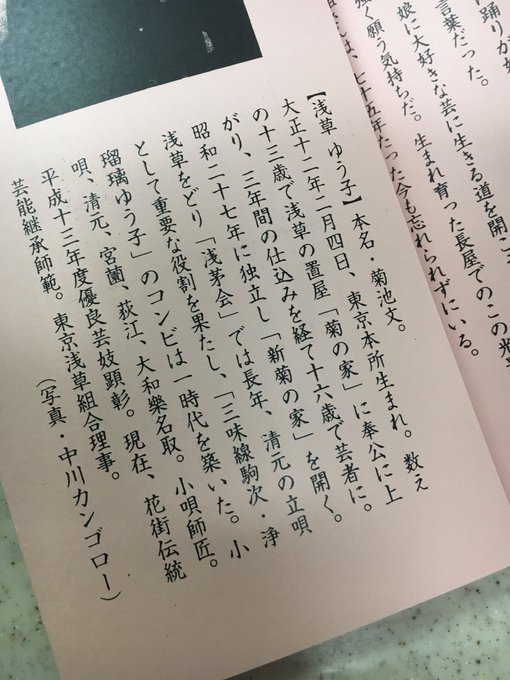 に踊りが好
言葉だった。
娘に大好きな芸に生きる道を開こ
強く願う気持ちだ。生まれ育った長屋でのこの光
は、七十五年たった今も忘れられずにいる。
【浅草 ゆう子】本名・菊池文。
大正十二年二月四日、東京本所生まれ。数え
の十三歳で浅草の置屋「菊の家」に奉公に上
がり、三年間の仕込みを経て十六歳で芸者に。
昭和二十七年に独立し「新菊の家」を開く。
浅草をどり「浅茅会」では長年、清元の立唄
として重要な役割を果たし、「三味線駒次・浄
瑠璃ゆう子」のコンビは一時代を築いた。小
唄、清元、宮薗、荻江、大和樂名取。小唄師匠。
平成十三年度優良芸妓顕彰。現在、花街伝統
芸能継承師範。東京浅草組合理事。
（写真・中川カンゴロー）